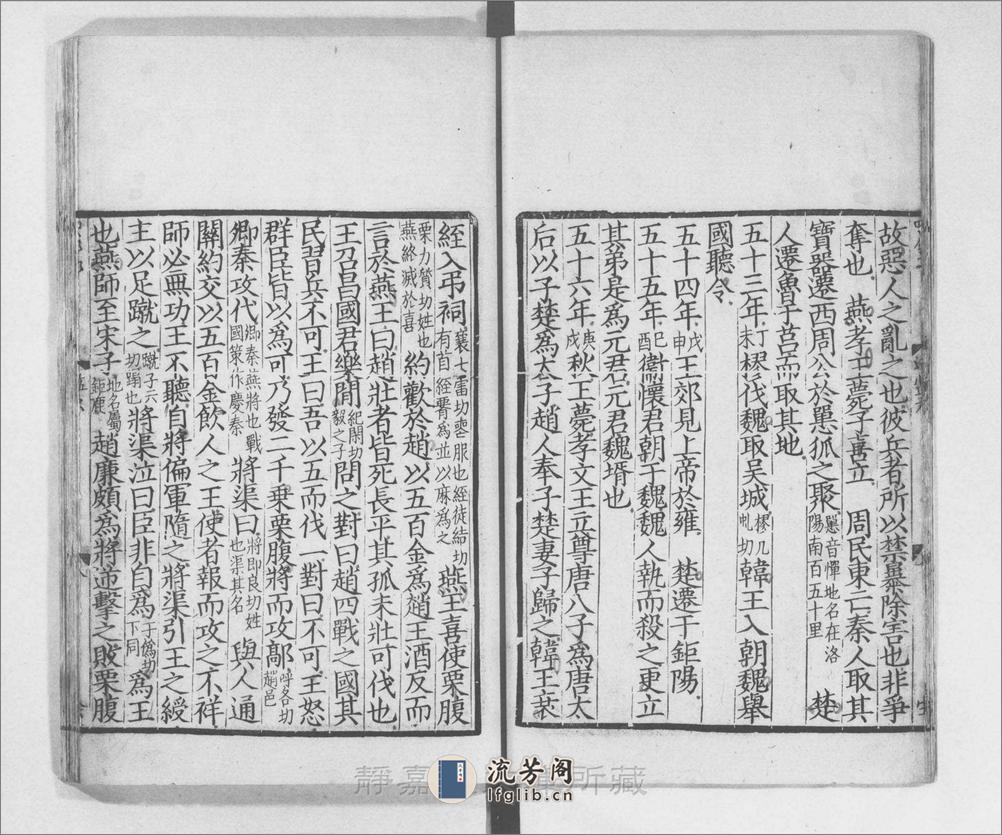 故惡人之亂之也彼兵者所以禁暴除害也非爭
奪也 燕孝王薨子喜立 周民東亡秦人取其
寶器遷西周公於㥻狐之聚㥻音憚地名在洛陽南百五十里 楚
人遷魯于莒而取其地
五十三年丁未摎伐魏取吴城摎几虬切韓王入朝魏舉
國聽令
五十四年戊申王郊見上帝於雍 楚遷于鉅陽
五十五年己酉衛懷君朝于魏魏人執而殺之更立
其弟是為元君元君魏壻也
五十六年庚戌秋王薨孝文王立尊唐八子為唐太
后以子楚為太子趙人奉子楚妻子歸之韓王衰
絰入弔祠衰七雷切喪服也絰徒結切有首絰要為並以麻為之 燕王喜使栗腹
栗力質切姓也燕終滅於喜約歡於趙以五百金為趙王酒反而
言於燕王曰趙壯者皆死長平其孤未壯可伐也
王召昌國君樂閒紀閑切毅之子問之對曰趙四戰之國其
民習兵不可王曰吾以五而伐一對曰不可王怒
群臣皆以為可乃發二千乘栗腹將而攻鄗呼各切趙邑
卿秦攻代卿秦燕將也戰國策作慶秦將渠曰將即良切姓也渠其名與人通
關約交以五百金飲人之王使者報而攻之不祥
師必無功王不聽自將偏軍隨之將渠引王之綬
王以足蹴之蹴子六切蹋也將渠泣曰臣非自為于偽切下同為王
也燕師至宋子地名屬鉅鹿趙廉頗為將逆擊之敗栗腹
静嘉 所藏
流芳阁
lfglib.cn